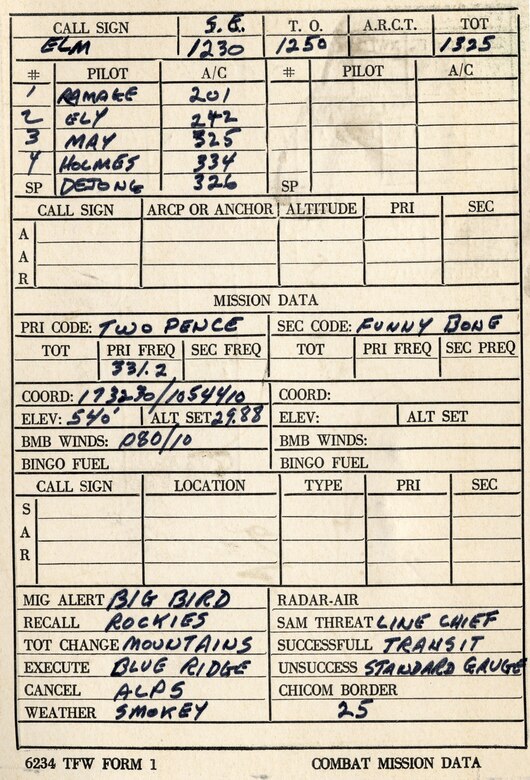 CALL SIGN S.E. T. O. A.R.C.T. TOT
ELM 1230 1250 1325
# PILOT A/C # PILOT A/C
1 RAMAKE 201
2 ELY 242
3 MAY 325
4 HOLMES 334
SP DEJONG 326 SP
CALL SIGN ARCP OR ANCHOR ALTITUDE PRI SEC
A
A
R
MISSION DATA
PRI CODE: TWO PENCE SEC CODE: FUNNY BONE
TOT PRI FREQ SEC FREQ TOT PRI FREQ SEC PREQ
331.2
COORD: 173230/1054410 COORD:
ELEV: 540' ALT SET 29.88 ELEV: ALT SET
BMB WINDS: 080/10 BMB WINDS:
BINGO FUEL BINGO FUEL
CALL SIGN LOCATION TYPE PRI SEC
S
A
R
MIG ALERT BIG BIRD RADAR-AIR
RECALL ROCKIES SAM THREAT LINE CHIEF
TOT CHANGE MOUNTAINS SUCCESSFULL TRANSIT
EXECUTE BLUE RIDGE UNSUCCESS STANDARD GAUGE
CANCEL ALPS CHICOM BORDER
WEATHER SMOKEY 25
6234 TFW FORM 1 COMBAT MISSION DATA